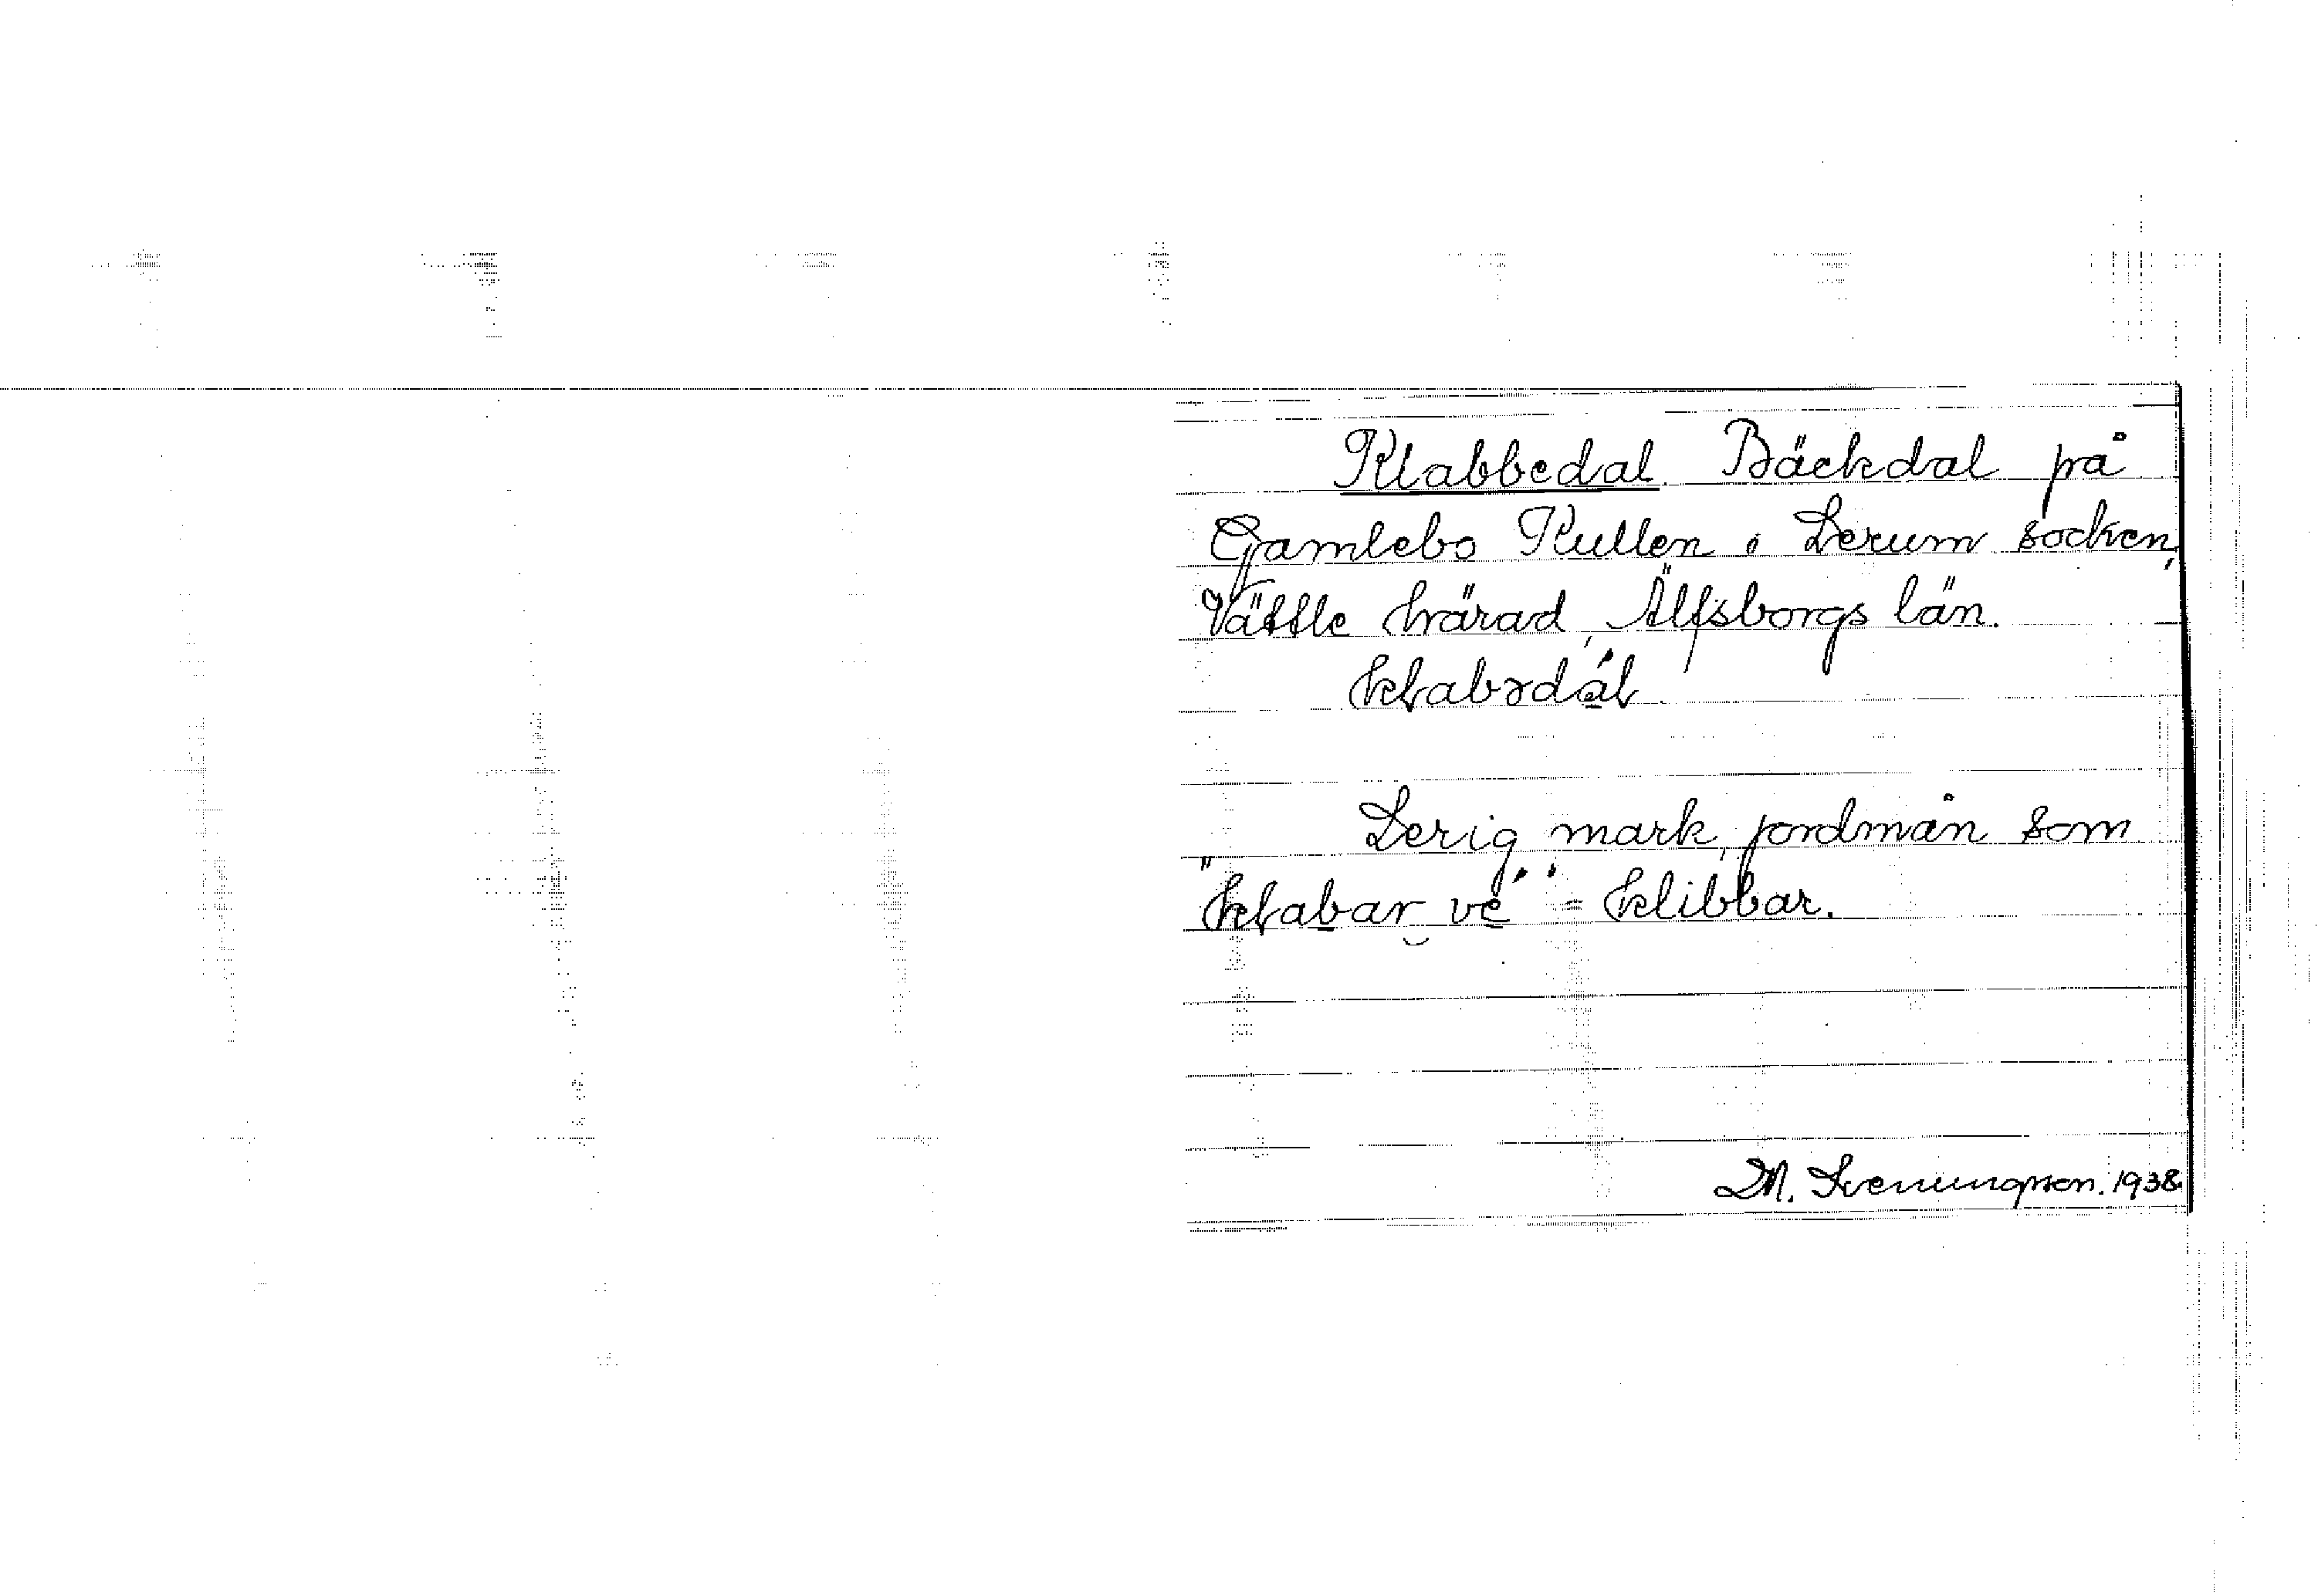 Klabbedal. Bäckdal på
Gamlebo Kullen i Lerum socken,
Vättle härad, Älfsborgs län.
klabədál
Lerig mark, jordmån som
"klabar vé" = klibbar.
M. Sveningsson. 1938.